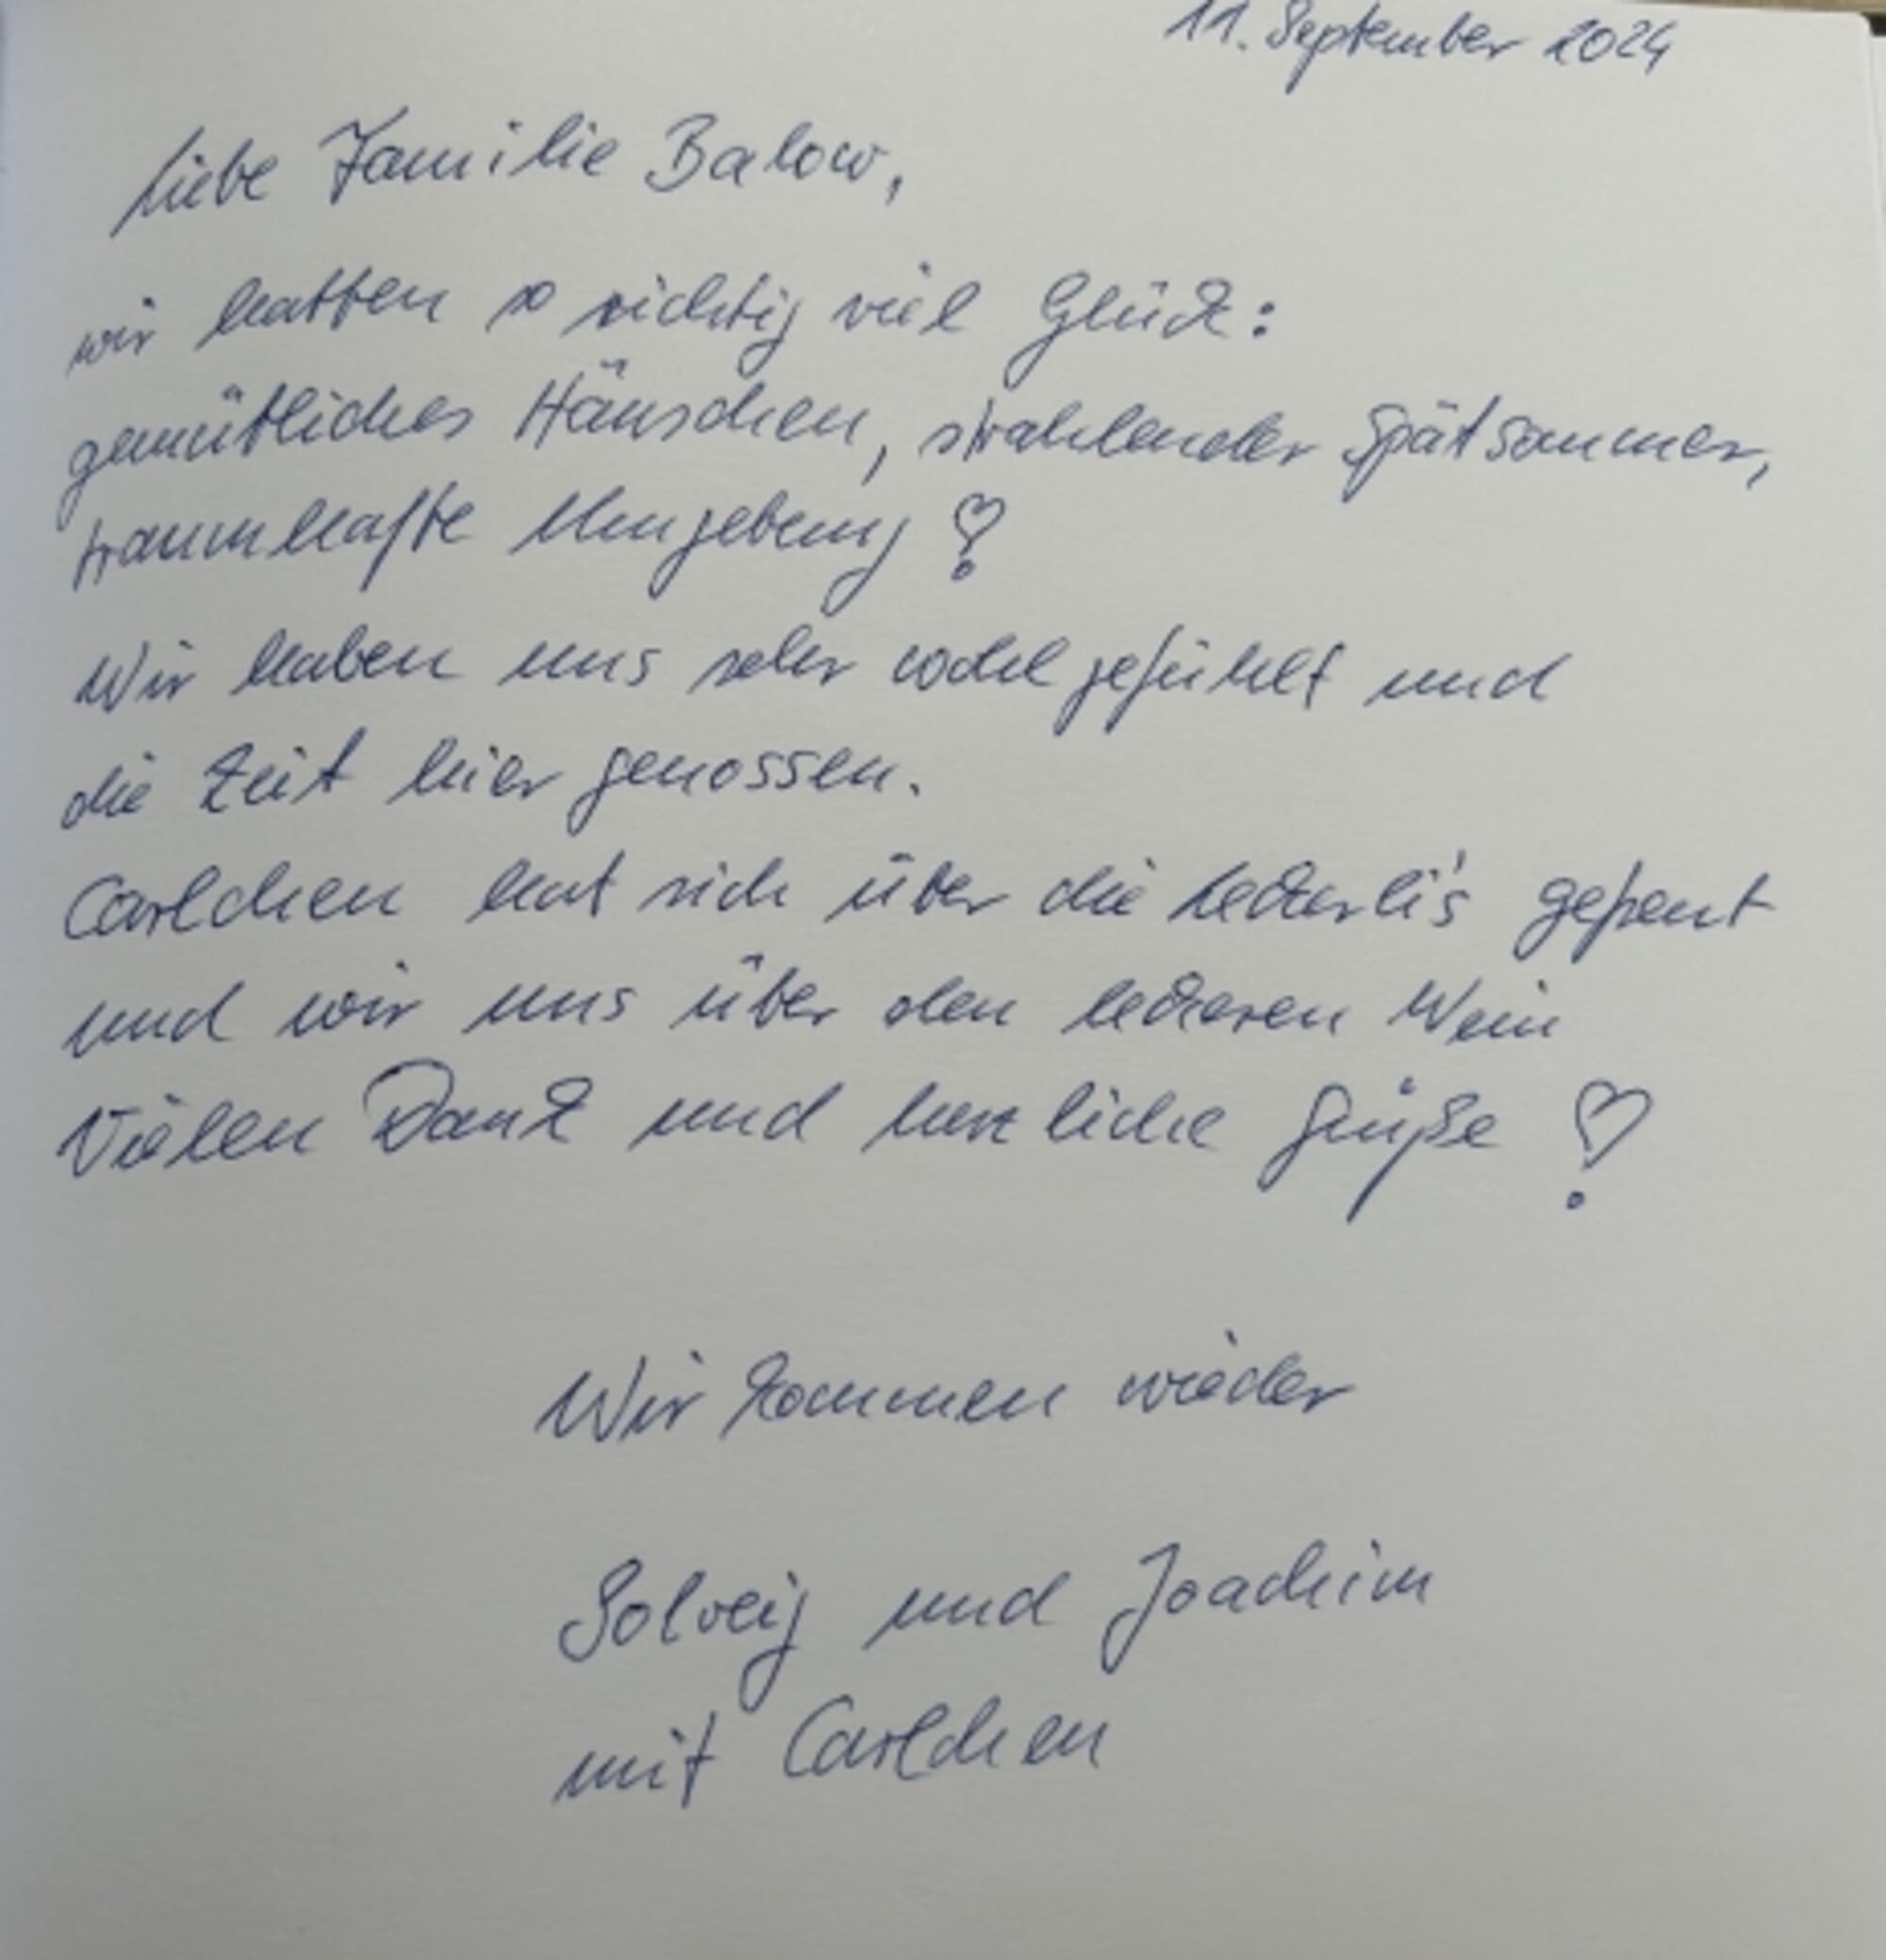 11. September 2024
Liebe Familie Balow,
wir hatten so richtig viel Glück:
gemütliches Häuschen, strahlender Spätsommer,
traumhafte Umgebung!
Wir haben uns sehr wohl gefühlt und
die Zeit hier genossen.
Carlchen hat sich über die Leckerli's gefreut
und wir uns über den leckeren Wein
Vielen Dank und herzliche Grüße!
Wir kommen wieder
Solveig und Joachim
mit Carlchen